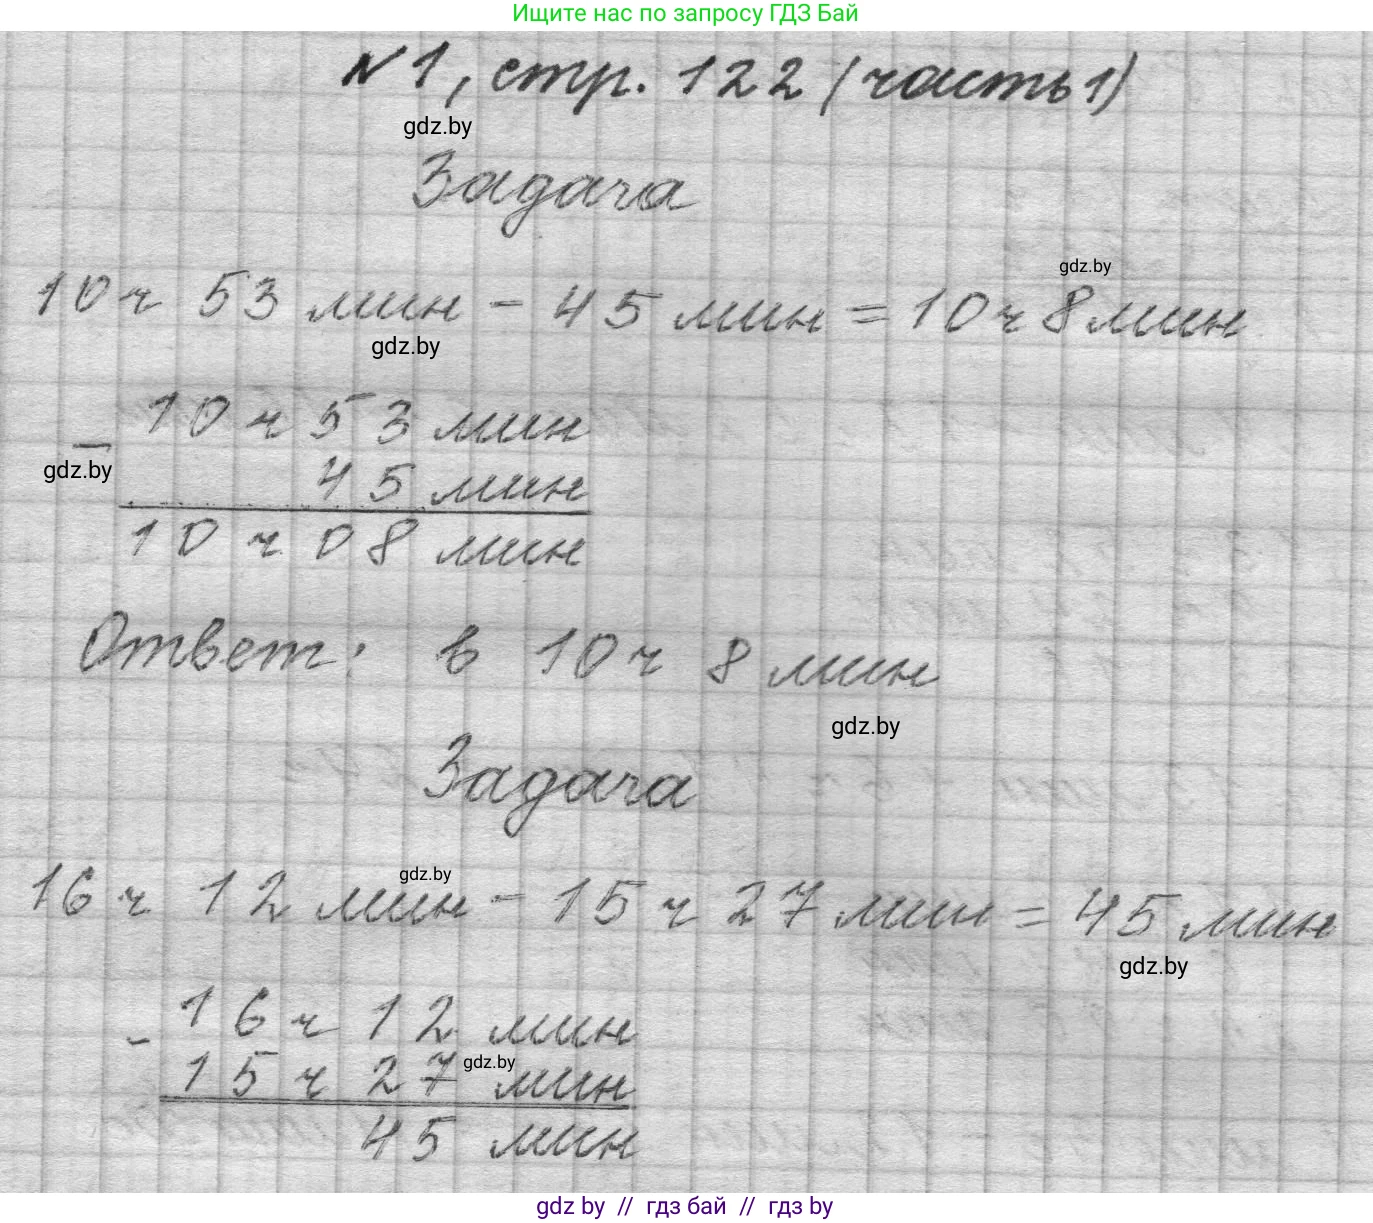 Ищите нас по запросу ГДЗ Бай
N1, стр. 122 (часть 1)
gdz.by
Задача
gdz.by
10 ч 53 мин - 45 мин = 10 ч 8 мин
gdz.by
10 ч 53 мин
-
gdz.by
45 мин
10 ч 08 мин
Ответ: в 10 ч 8 мин
gdz.by
Задача
gdz.by
16 ч 12 мин - 15 ч 27 мин = 45 мин
gdz.by
16 ч 12 мин
-
gdz.by
15 ч 27 мин
45 мин
gdz by // гдз бай // гдз by